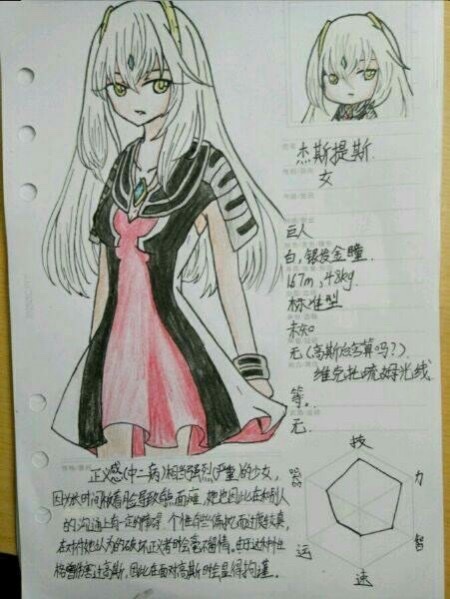 杰斯提斯
女
巨人
白,银发金瞳.
167m,48kg
标准型
未知
无(高斯应该算吗?)
维克托琉姆光线
等。
无.
技
力
智
速
运
正义感(中二病)相当强烈(严重)的少女,
因为长时间被冒险导致面瘫,她也因此在和别人
的沟通上有一定的障碍.个性有些偏执而过度较真,
在对付她认为的破坏正义者时会毫不留情。由于这种性
格曾伤害过高斯,因此在面对高斯时会显得拘谨。